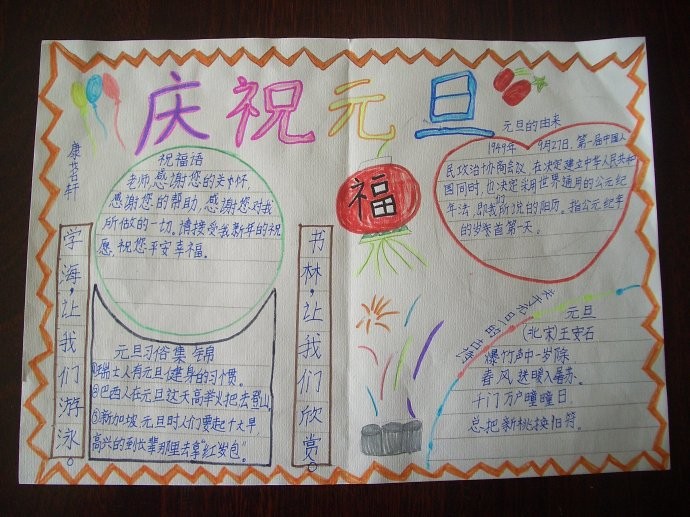 庆祝元旦
康茗轩
祝福语
老师,感谢您的关怀,
感谢您的帮助,感谢您对我
所做的一切。请接受我新年的祝
愿,祝您平安幸福。
学海,让我们游泳。
元旦习俗集锦
①瑞士人有元旦健身的习惯。
②巴西人在元旦这天高举火把去登山。
③新加坡元旦时人们要起个大早,
高兴的到长辈那里去拿“红岁包”。
书林,让我们欣赏。
福
元旦的由来
1949年 9月27日,第一届中国人
民政治协商会议,在决定建立中华人民共和
国同时,也决定采用世界通用的公元纪
年法,即我们所说的阳历。指公元纪年
的岁首第一天。
关于元旦的古诗
元旦
(北宋)王安石
爆竹声中一岁除
春风送暖入屠苏。
千门万户瞳瞳日
总把新桃换旧符。